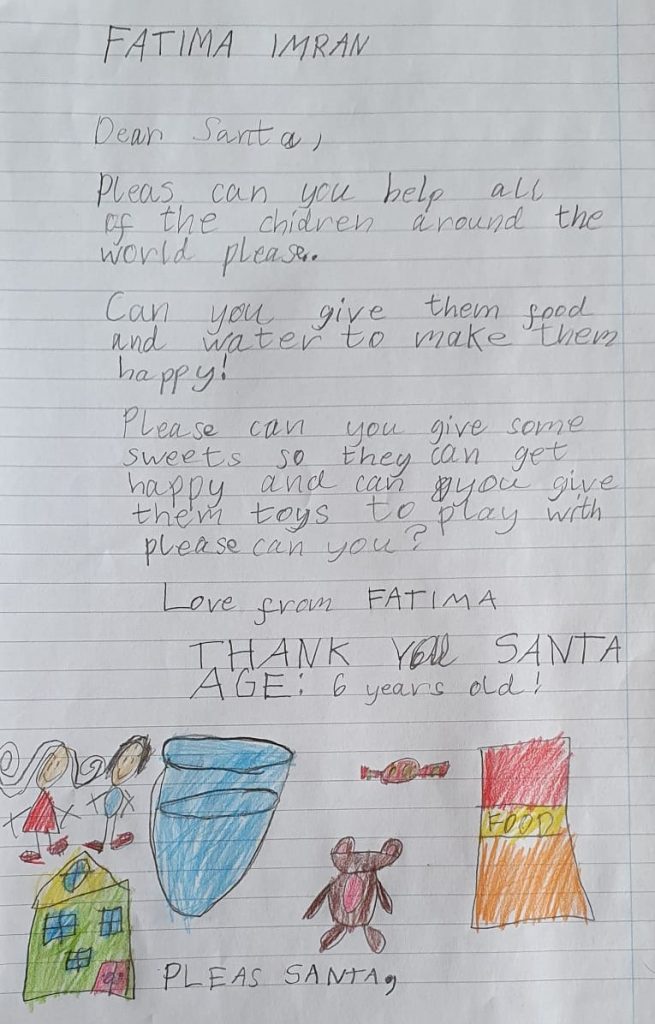 FATIMA IMRAN
Dear Santa,
Pleas can you help all
of the chidren around the
world please.
Can you give them food
and water to make them
happy!
Please can you give some
sweets so they can get
happy and can you give
them toys to play with
please can you?
Love from FATIMA
THANK YOU SANTA
AGE: 6 years old!
FOOD
PLEAS SANTA,